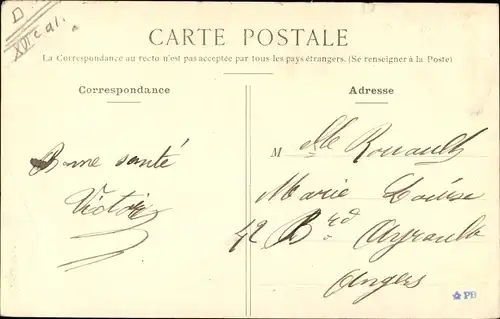 CARTE POSTALE
La Correspondance au recto n'est pas acceptée par tous les pays étrangers. (Se renseigner à la Poste)
Correspondance
Bonne santé
Victor
Adresse
M elle Rouault
Marie Louise
42 Brd Ayrault
Angers
PB